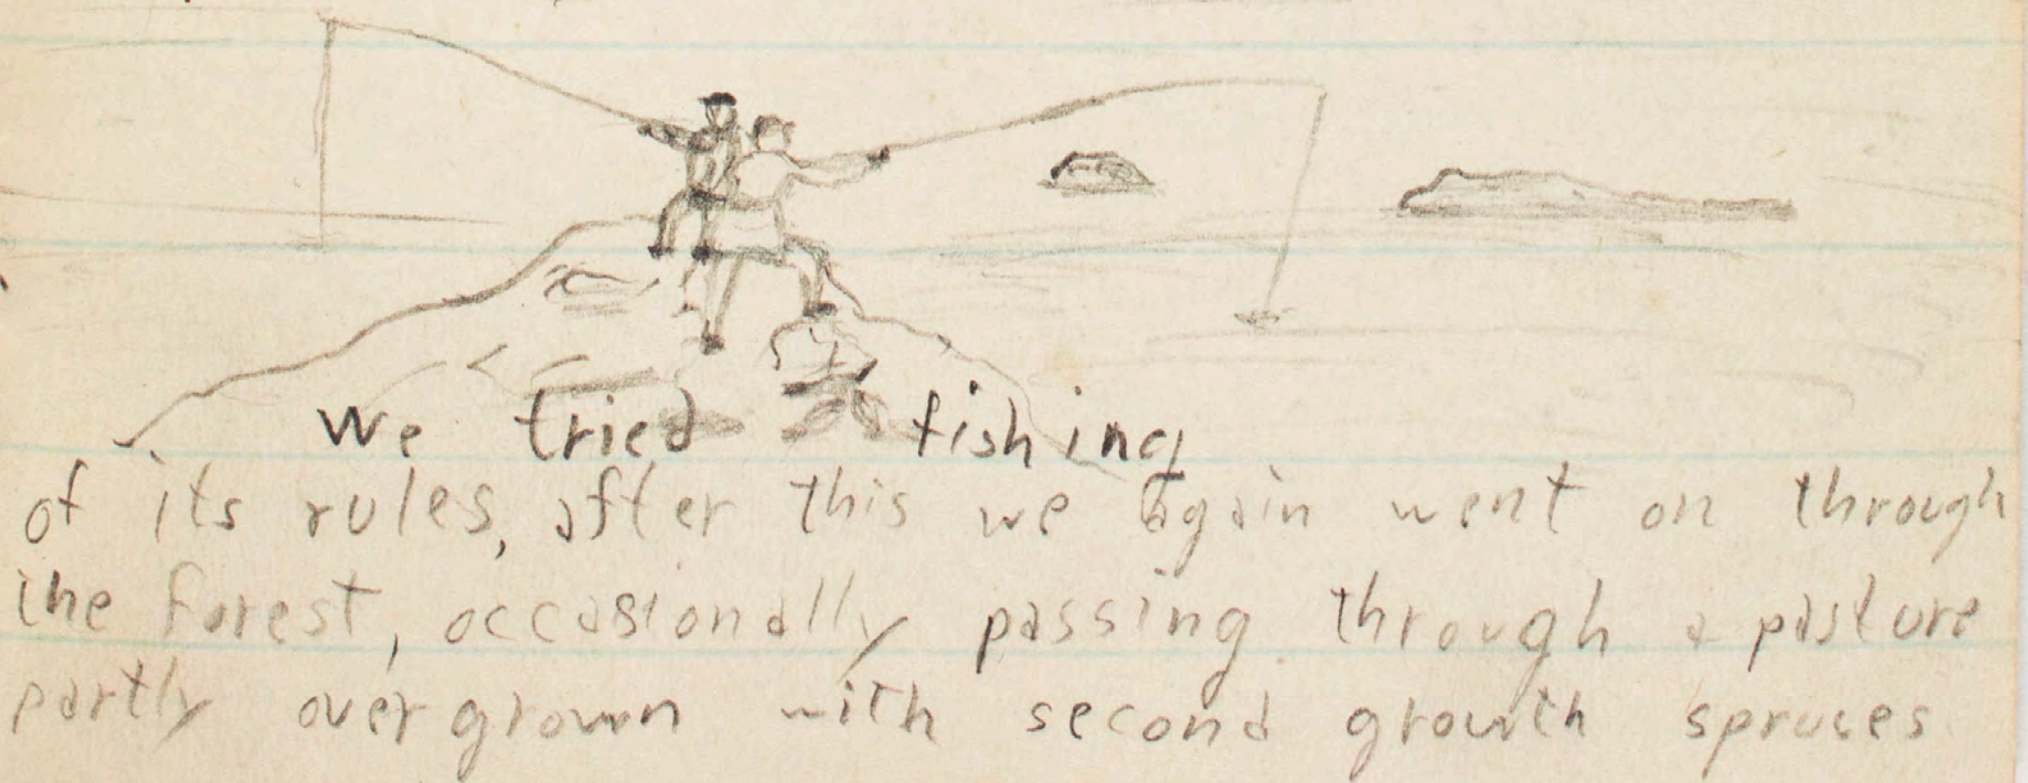 we tried fishing
of its rules, after this we again went on through
the forest, occasionally passing through a pasture
partly overgrown with second growth spruces